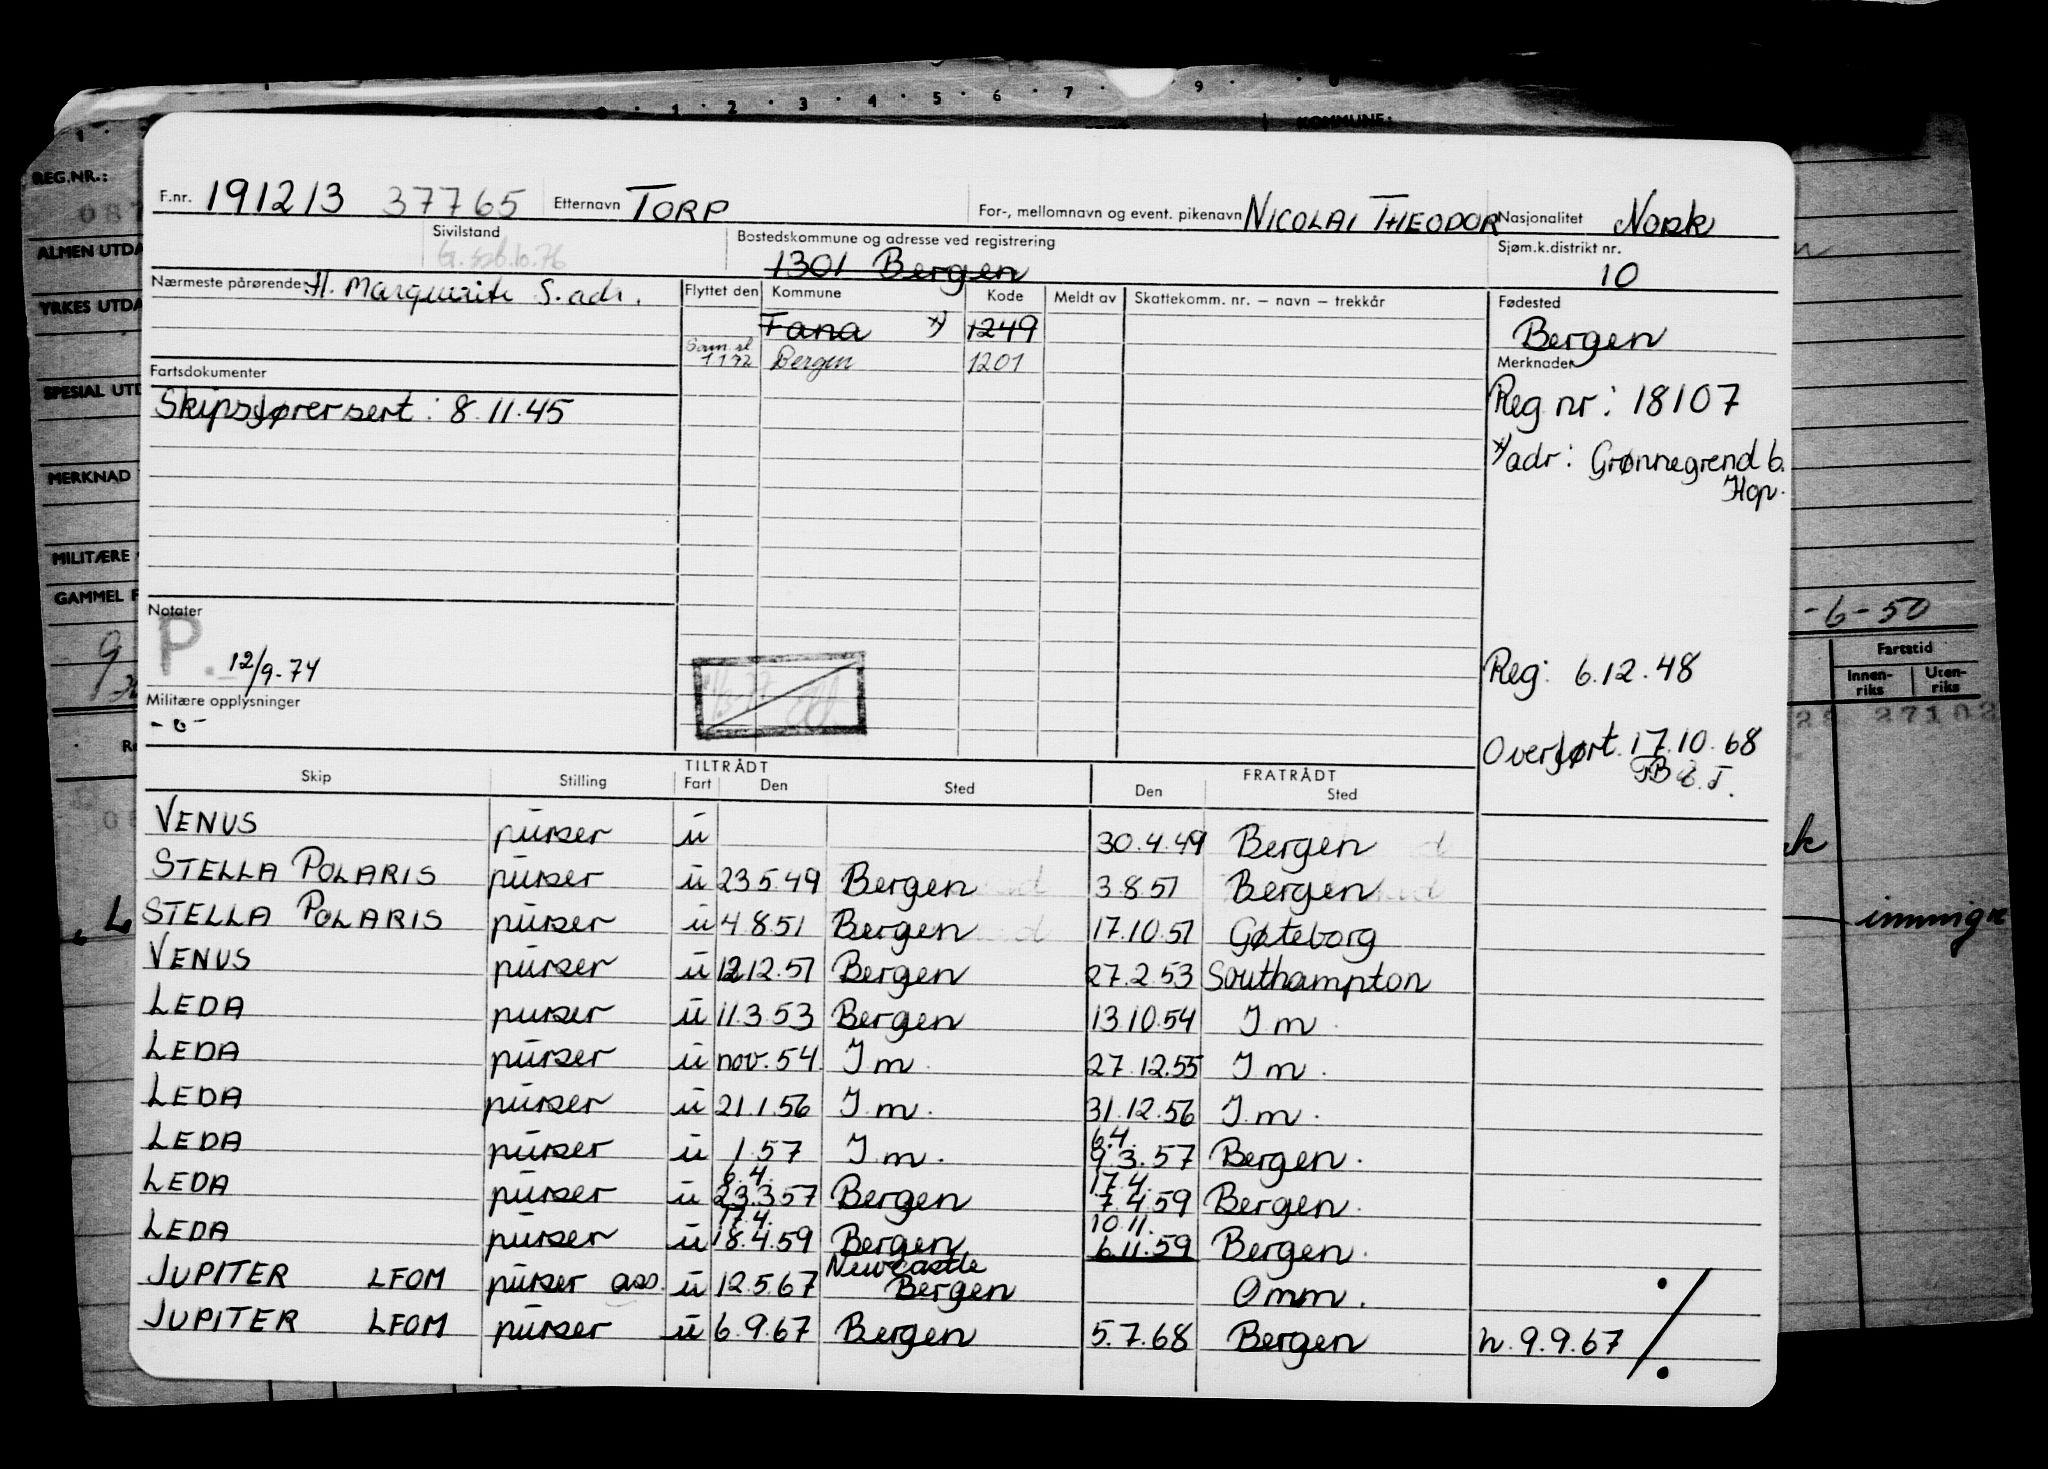 1 2 3 4 5 6 7 9
KOMMUNE:
REG.NR.:
ALMEN UTDA
YRKES UTDA
SPESIAL UTD
MERKNAD
MILITÆRE
GAMMEL F
F.nr. 191213 37765 Etternavn TORP For-, mellomnavn og event. pikenavn NICOLAI THEODOR Nasjonalitet Norsk
Sivilstand Bostedskommune og adresse ved registrering Sjøm.k.distrikt nr.
1301 Bergen 10
Nærmeste pårørende H. Marguerite S. adr. Flyttet den Kommune Kode Meldt av Skattekomm. nr. – navn – trekkår Fødested
Fana x) 1249 Bergen
Sam. sl. 1 1 72 Bergen 1201 Merknader
Fartsdokumenter
Skipsførersert: 8.11.45 Reg nr: 18107
x) adr: Grønnegrend 6.
Hop.
Notater
P. 12/9-74 Reg: 6.12.48
-6-50
Fartstid
Innen-riks Uten-riks
27102
Militære opplysninger
-o-
Overført 17.10.68
TILTRÅDT FRATRÅDT
Skip Stilling Fart Den Sted Den Sted
VENUS purser u 30.4.49 Bergen
STELLA POLARIS purser u 23.5.49 Bergen 3.8.51 Bergen
STELLA POLARIS purser u 4.8.51 Bergen 17.10.51 Gøteborg
VENUS purser u 12.12.51 Bergen 27.2.53 Southampton
LEDA purser u 11.3.53 Bergen 13.10.54 I m.
LEDA purser u nov. 54 I m. 27.12.55 I m.
LEDA purser u 21.1.56 I m. 31.12.56 I m.
LEDA purser u 1.57 I m. 6.4. 9.3.57 Bergen.
LEDA purser u 6.4. 23.3.57 Bergen 17.4. 7.4.59 Bergen.
LEDA purser u 17.4. 18.4.59 Bergen 10.11. 6.11.59 Bergen.
JUPITER LFOM purser ass. u 12.5.67 Newcastle Bergen Omm.
JUPITER LFOM purser u 6.9.67 Bergen 5.7.68 Bergen h. 9.9.67 ./.